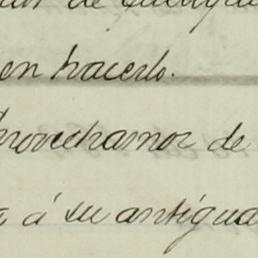 de
en hacerlo.
provechamos de
á su antigua